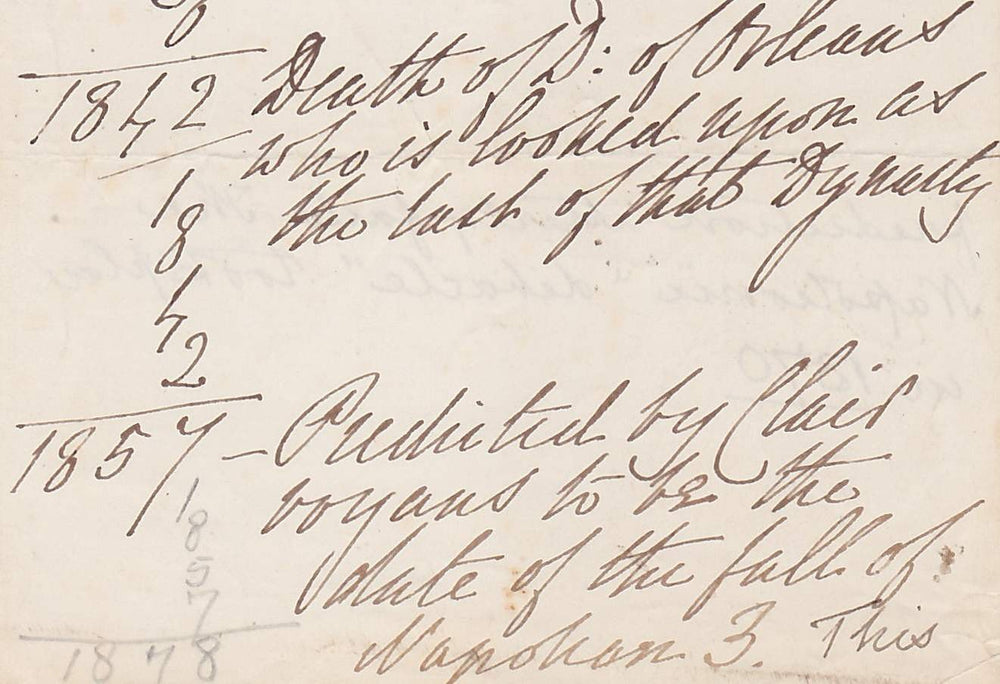 8
1842 Death of D: of Orleans
who is looked upon as
1 the last of that Dynasty
8
4
2
1857 – Predicted by Clair
1 voyans to be the
8
5 date of the fall of
7
1878 Napoleon 3. This